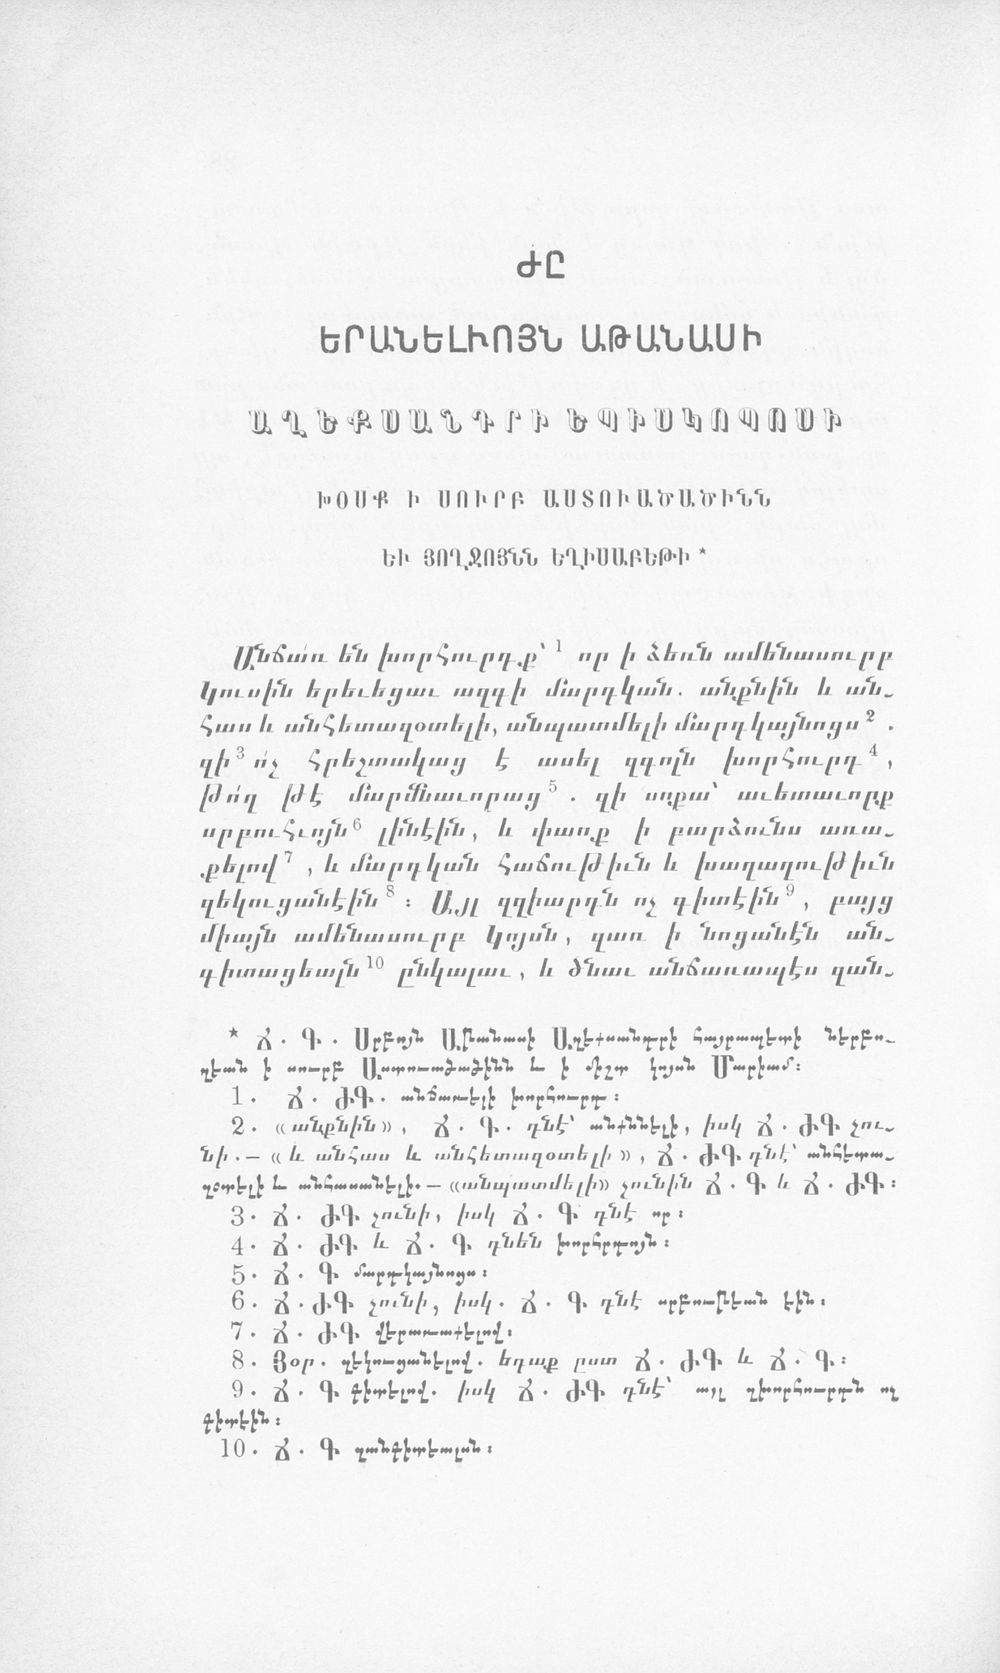 ԺԸ
ԵՐԱՆԵԼՒՈՅՆ ԱԹԱՆԱՍԻ
ԱՂԵՔՍԱՆԴՐԻ ԵՊԻՍԿՈՊՈՍԻ
ԽՕՍՔ Ի ՍՈՒՐԲ ԱՍՏՈՒԱԾԱԾԻՆՆ
ԵՒ ՅՈՂՋՈՅՆՆ ԵՂԻՍԱԲԵԹԻ *
Անճառ են խորհուրդք՝ 1 որ ի ձեռն ամենասուրբ
Կուսին երեւեցաւ ազգի մարդկան. անքնին և ան-
հաս և անհետազօտելի, անպատմելի մարդկայնոցս 2 .
զի 3 ո՛չ հրեշտակաց է ասել զգոյն խորհուրդ 4 ,
թո՛ղ թէ մարմնաւորաց 5 . զի սոքա՝ աւետաւորք
սրբուհւոյն 6 լինէին, և փառք ի բարձունս առա-
քելով 7 , և մարդկան հաճութիւն և խաղաղութիւն
զեկուցանէին 8 : Այլ զզիարդն ոչ գիտէին 9 , բայց
միայն ամենասուրբ Կոյսն, զառ ի նոցանէն ան-
գիտացեալն 10 ընկալաւ, և ծնաւ անճառապէս զան-
* Ճ. Գ. Սրբոյն Աթանասի Աղեքսանդրի հայրապետի ներբո-
ղեան ի սուրբ Աստուածածինն և ի միշտ կոյսն Մարիամ:
1. Ճ. ԺԳ. անճառելի խորհուրդ:
2. «անքնին», Ճ. Գ. դնէ՝ անքննելի, իսկ Ճ. ԺԳ չու-
նի.— «և անհաս և անհետազօտելի», Ճ. ԺԳ դնէ՝ անհետա-
զօտելի և անհասանելի.— «անպատմելի» չունին Ճ. Գ և Ճ. ԺԳ:
3. Ճ. ԺԳ չունի, իսկ Ճ. Գ դնէ որ:
4. Ճ. ԺԳ և Ճ. Գ դնեն խորհրդոյն:
5. Ճ. Գ մարդկայնոցս:
6. Ճ. ԺԳ չունի, իսկ. Ճ. Գ դնէ սրբութեան էին:
7. Ճ. ԺԳ վերառաքելով:
8. Յօր. զեկուցանելով. եդաք ըստ Ճ. ԺԳ և Ճ. Գ:
9. Ճ. Գ գիտելով. իսկ Ճ. ԺԳ դնէ՝ այլ զխորհուրդն ոչ
գիտէին:
10. Ճ. Գ զանգիտեալսն: